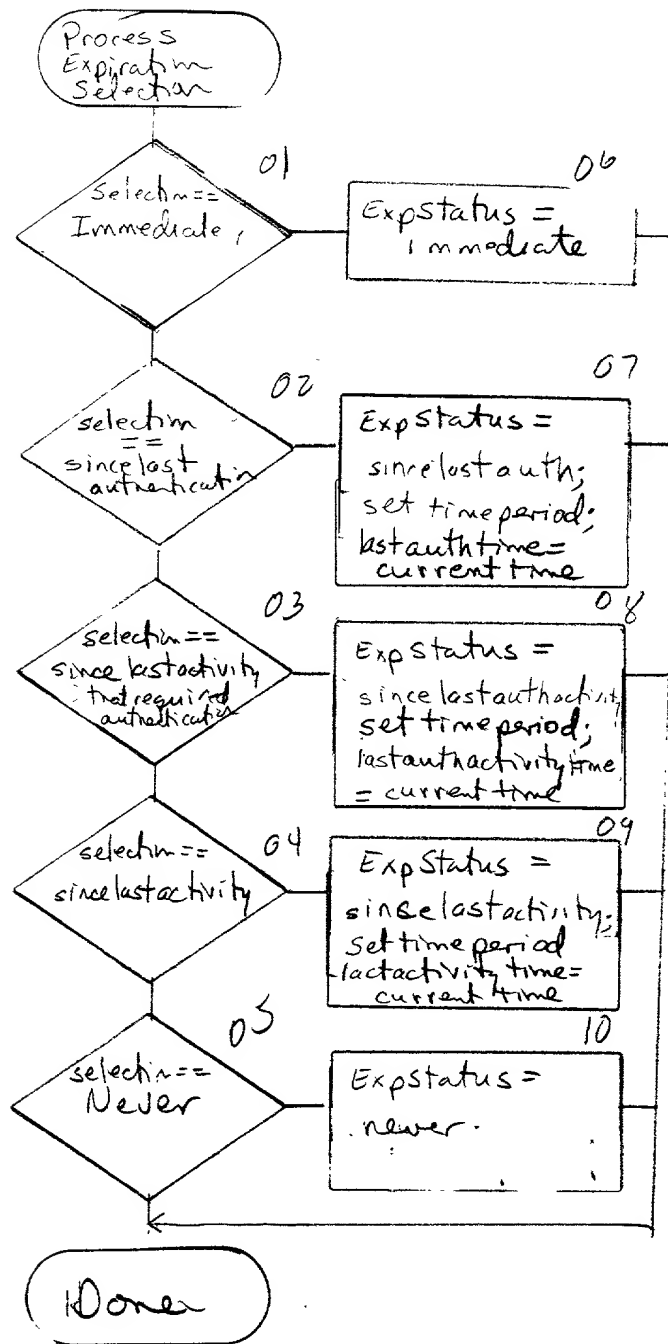 Process
Expiration
Selection
01
Selection==
Immediate,
06
ExpStatus =
immediate
02
selection
==
sincelast
authentication
07
ExpStatus =
sincelastauth;
set timeperiod;
lastauthtime=
current time
03
selection==
sincelastactivity
that required
authentication
08
ExpStatus =
sincelastauthactivity
set timeperiod;
lastauthactivitytime
= current time
04
selection==
sincelastactivity
09
ExpStatus =
sincelastactivity;
set timeperiod
lactactivity time=
current time
05
selection==
Never
10
ExpStatus =
never.
Done